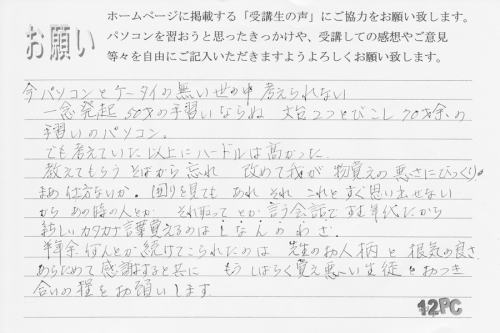 お願い
ホームページに掲載する「受講生の声」にご協力をお願い致します。
パソコンを習おうと思ったきっかけや、受講しての感想やご意見
等々を自由にご記入いただきますようよろしくお願い致します。
今パソコンとケータイの無い世の中 考えられない
一念発起 50才の手習いならぬ 文台2つとびこし 70才余の
手習いのパソコン。
でも考えていた以上にハードルは高かった
教えてもらう そばから忘れ 改めて我が 物覚えの悪さにびっくり。
まあ仕方ないか。回りを見ても あれ それ これと すぐ思い出せない
から あの時の人とか それ取って とか 言う会話で すむ年代だから
新しいカタカナ言葉覚えるのは しなんのわざ。
半年余 何んとか 続けてこられたのは 先生のお人柄 と 根気の良さ
あらためて感謝すると共に もうしばらく覚え悪〜い生徒とおつき
合いの程をお願いします。
12PC